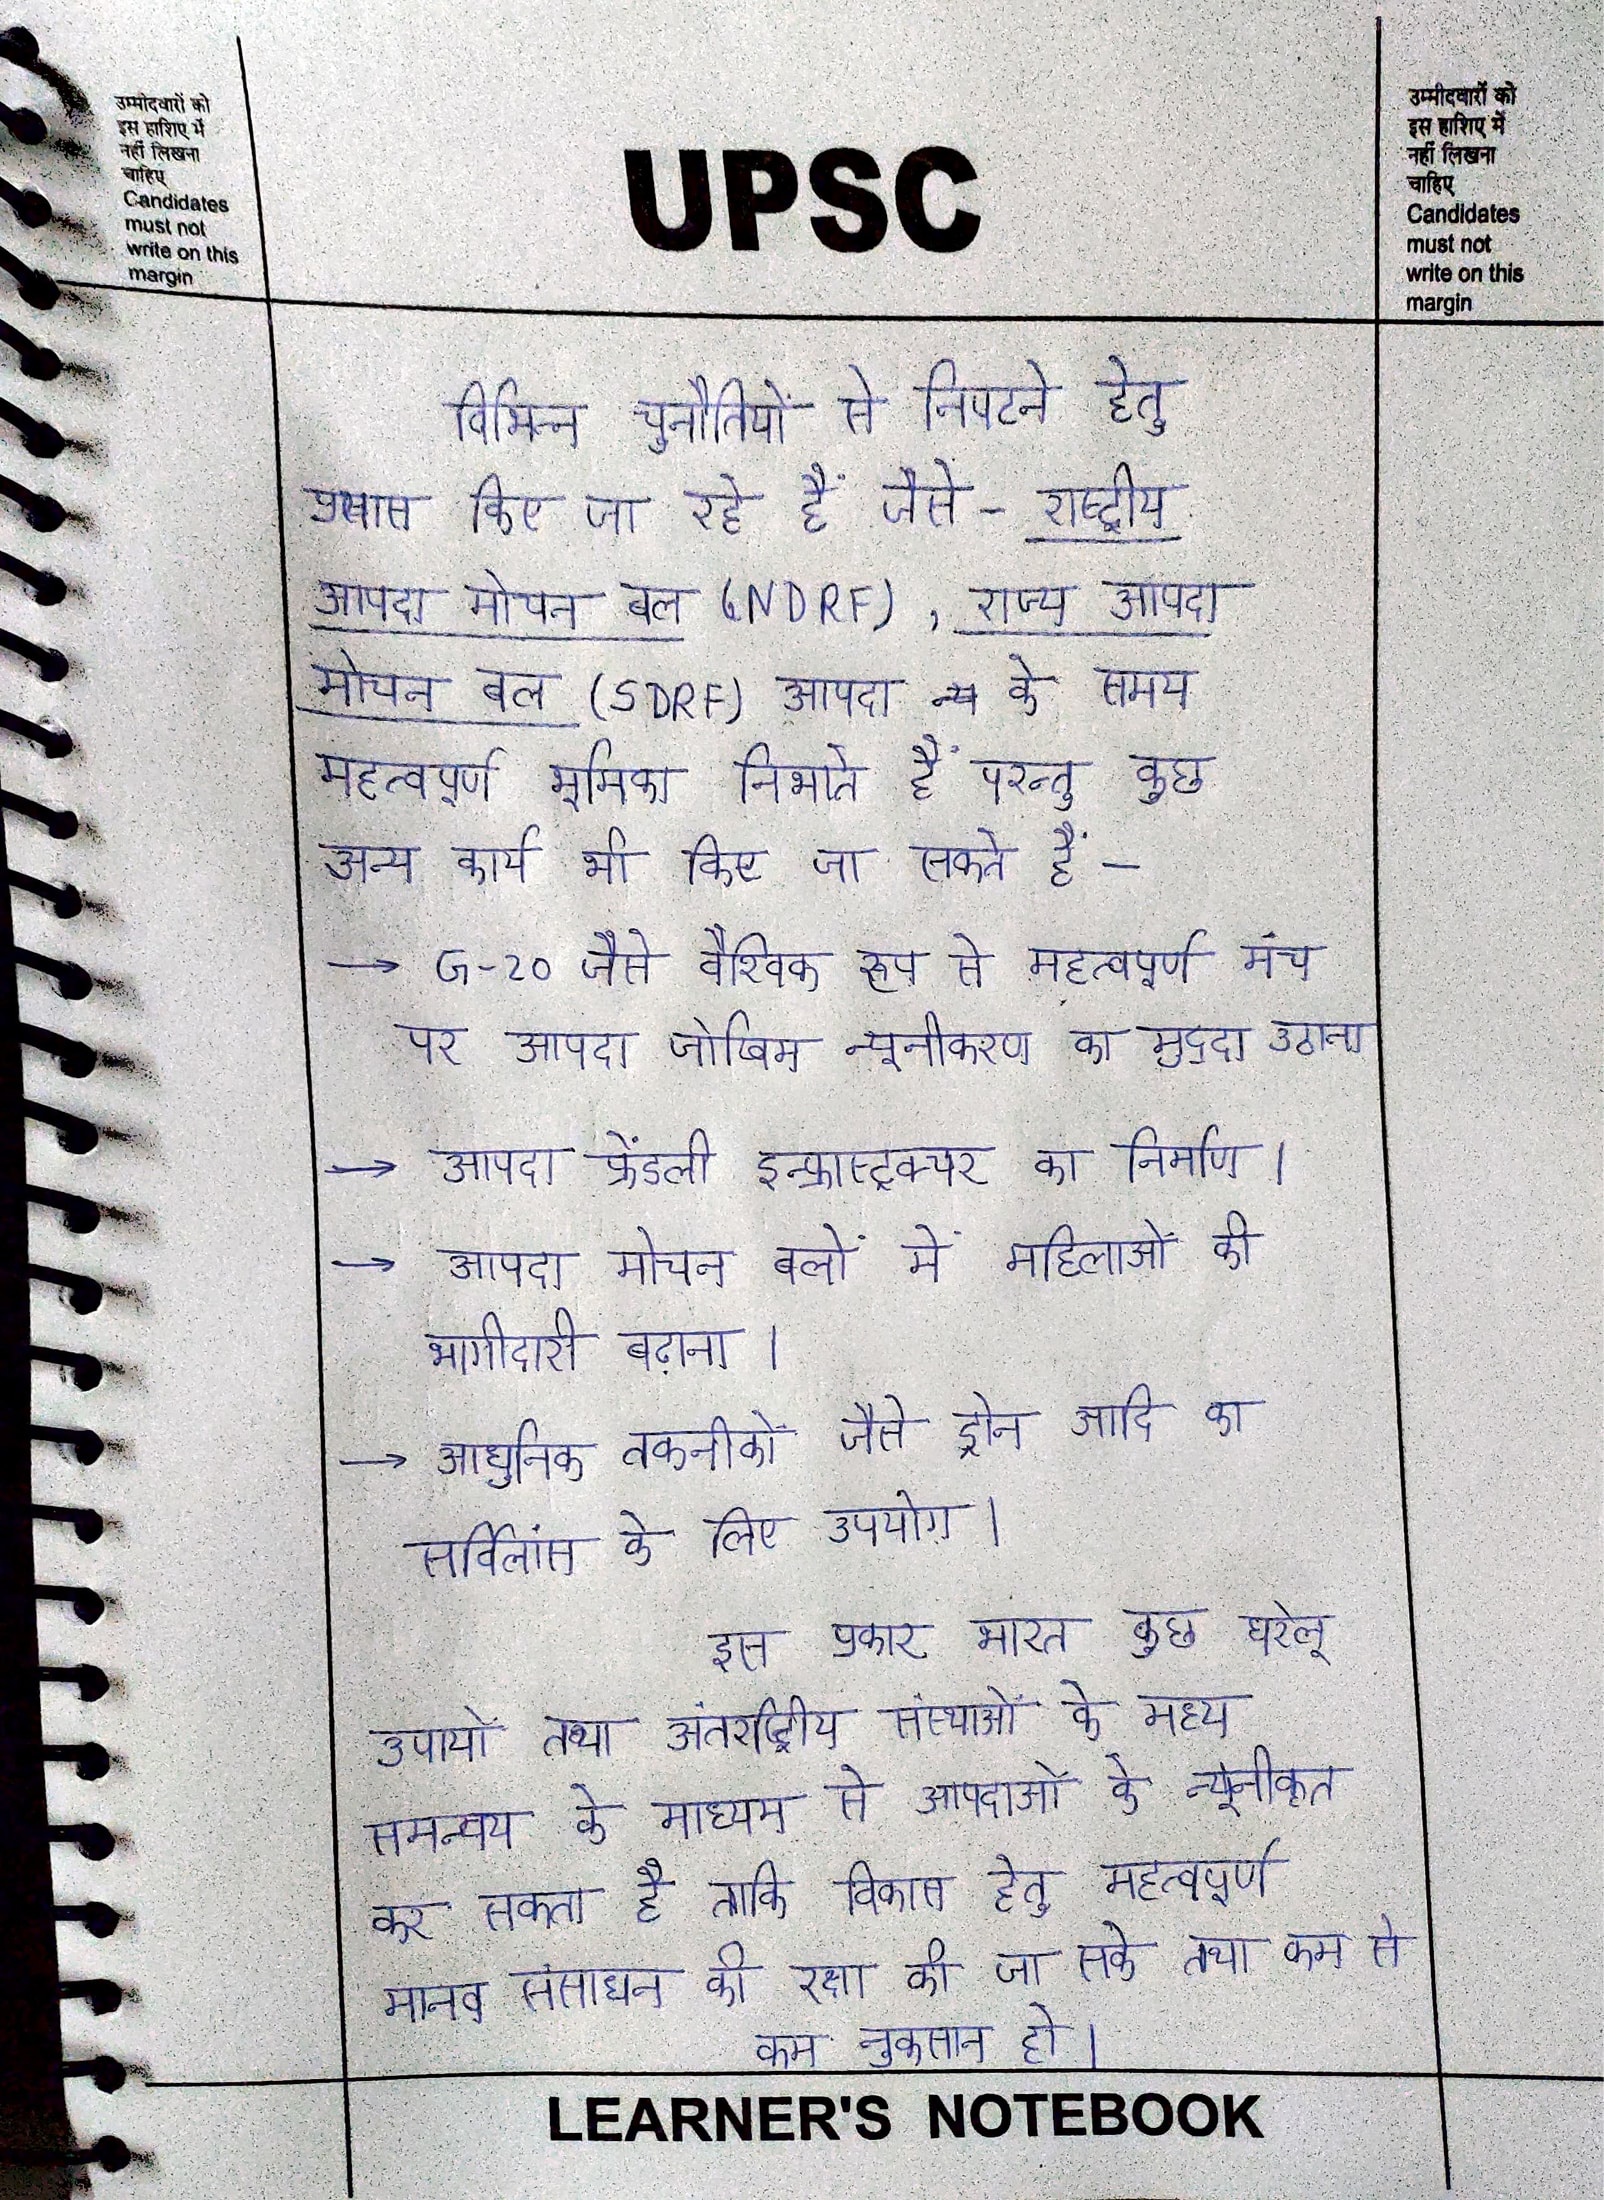 उम्मीदवारों को
इस हाशिए में
नहीं लिखना
चाहिए
Candidates
must not
write on this
margin
UPSC
उम्मीदवारों को
इस हाशिए में
नहीं लिखना
चाहिए
Candidates
must not
write on this
margin
विभिन्न चुनौतियों से निपटने हेतु
प्रयास किए जा रहे हैं जैसे - राष्ट्रीय
आपदा मोचन बल (NDRF), राज्य आपदा
मोचन बल (SDRF) आपदा के समय
महत्वपूर्ण भूमिका निभाते हैं परन्तु कुछ
अन्य कार्य भी किए जा सकते हैं -
→ G-20 जैसे वैश्विक रूप से महत्वपूर्ण मंच
पर आपदा जोखिम न्यूनीकरण का मुद्दा उठाना
→ आपदा फ्रेंडली इन्फ्रास्ट्रक्चर का निर्माण ।
→ आपदा मोचन बलों में महिलाओं की
भागीदारी बढ़ाना ।
→ आधुनिक तकनीकों जैसे ड्रोन आदि का
सर्विलांस के लिए उपयोग ।
इस प्रकार भारत कुछ घरेलू
उपायों तथा अंतर्राष्ट्रीय संस्थाओं के मध्य
समन्वय के माध्यम से आपदाओं के न्यूनीकृत
कर सकता है ताकि विकास हेतु महत्वपूर्ण
मानव संसाधन की रक्षा की जा सके तथा कम से
कम नुकसान हो ।
LEARNER'S NOTEBOOK